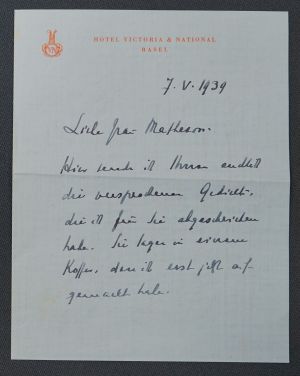 HOTEL VICTORIA & NATIONAL
BASEL
7. V. 1939
Liebe Frau Matheson.
Hier sende ich Ihnen endlich
die versprochenen Gedichte,
die ich für Sie abgeschrieben
habe. Sie lagen in einem
Koffer, den ich erst jetzt auf
gemacht habe.